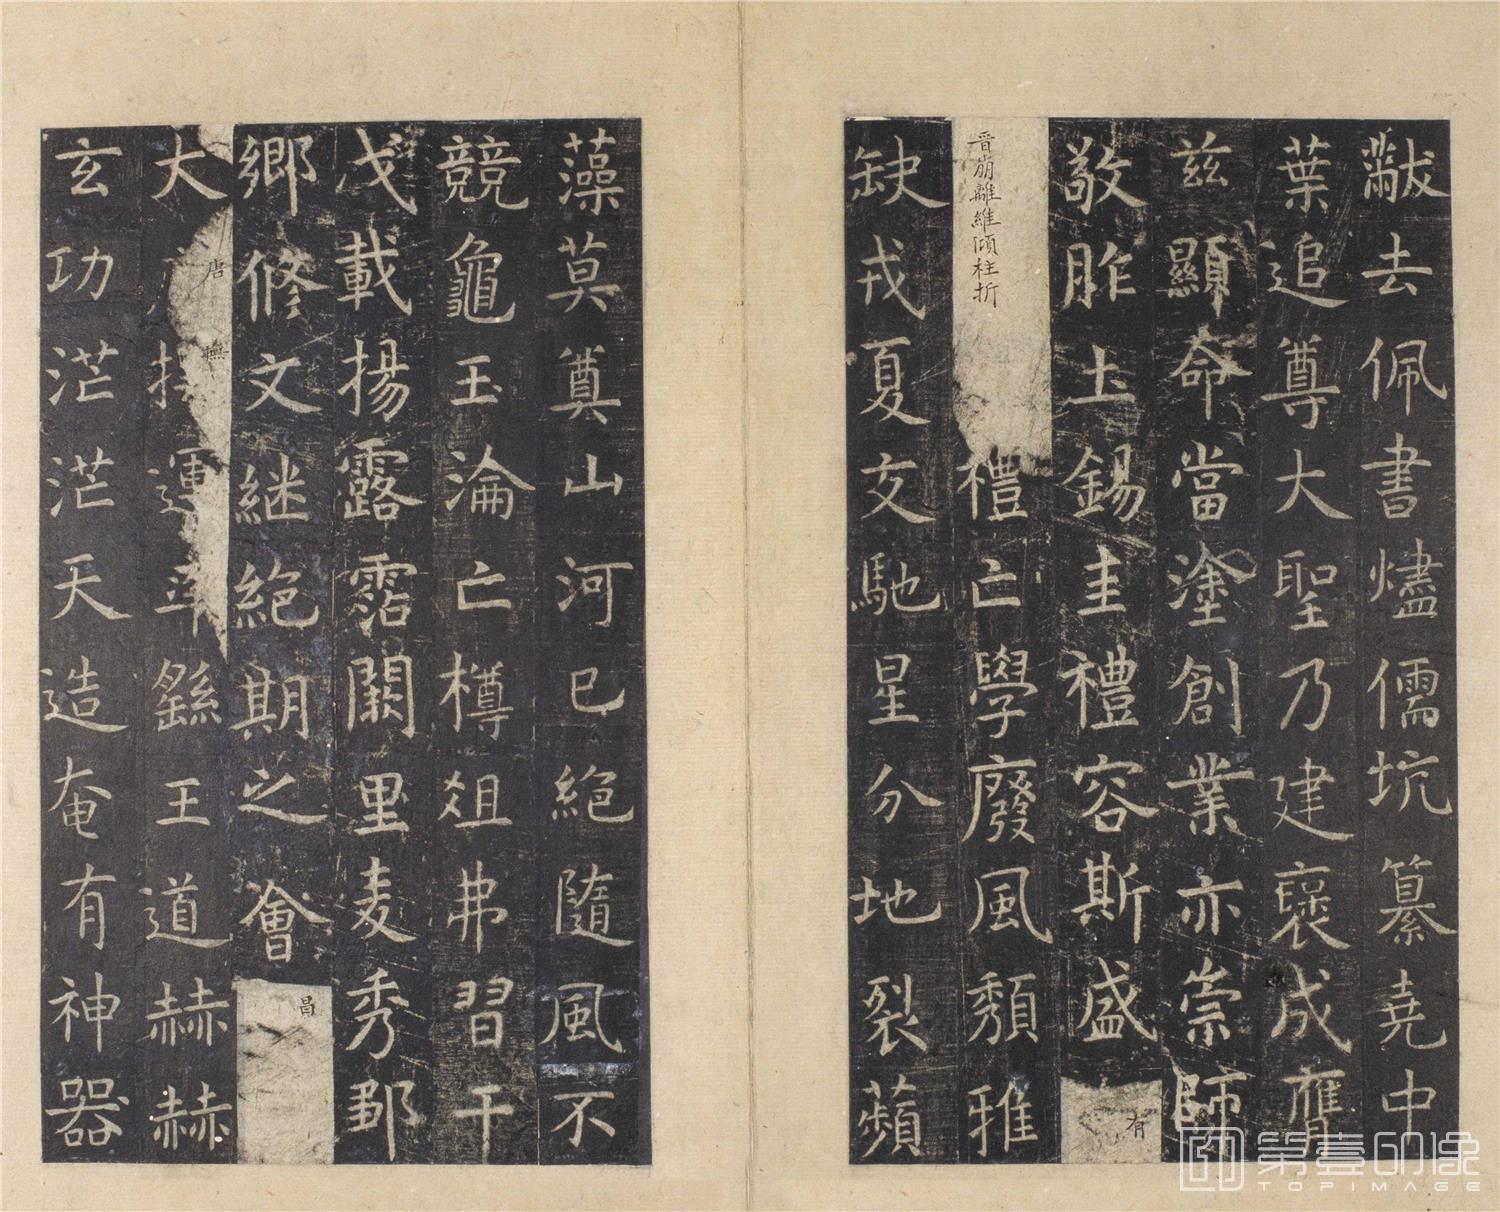 黻去佩書燼儒坑纂堯中
葉追尊大聖乃建褒成膺
茲顯命當塗創業亦崇師
敬胙土錫圭禮容斯盛有
晉崩離維傾柱折禮亡學廢風頹雅
缺戎夏交馳星分地裂蘋
藻莫奠山河已絕隨風不
競龜玉淪亡樽俎弗習干
戈載揚露霑闕里麥秀鄒
鄉修文繼絕期之會昌
大唐撫運率繇王道赫赫
玄功茫茫天造奄有神器
第壹印像
TOPIMAGE